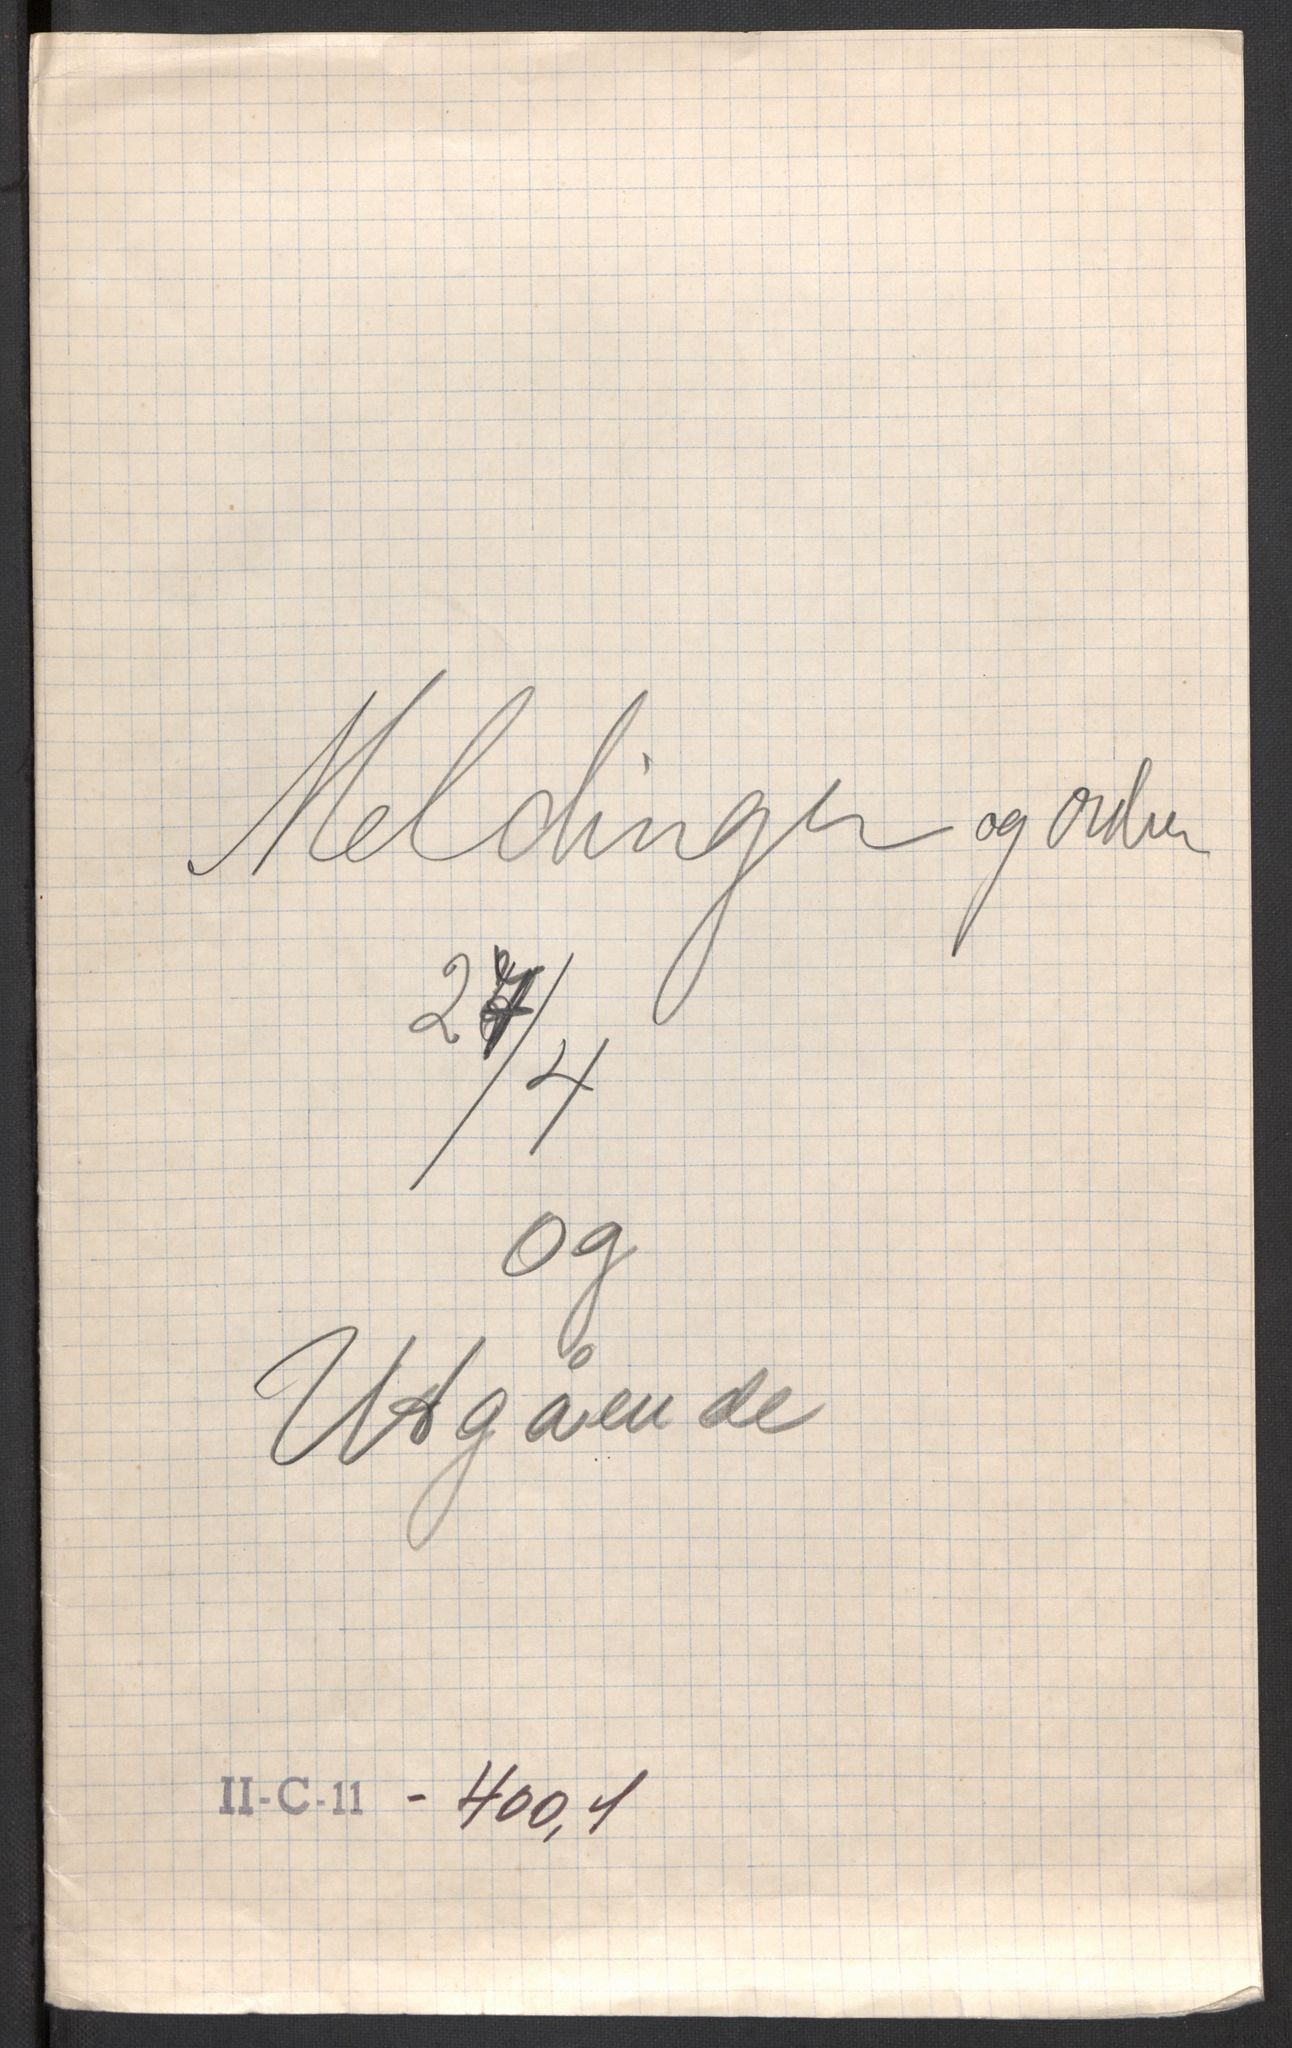 Meldinger og ordrer
27/4
og
Utgående
II-C-11 - 400,1